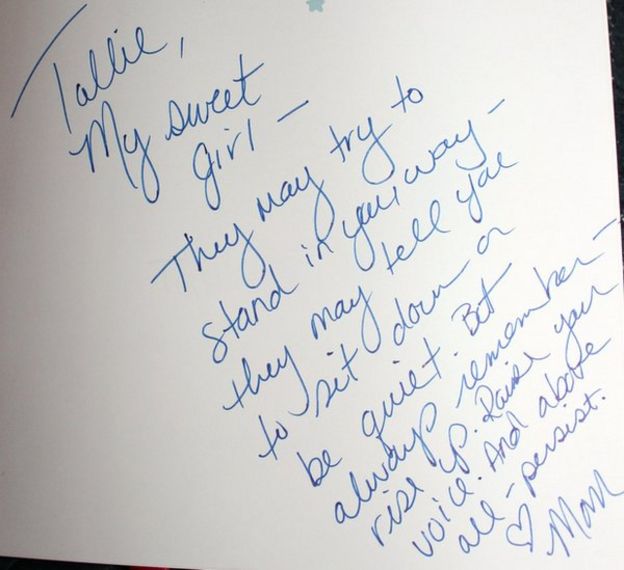 Tallie,
My sweet
girl -
They may try to
stand in your way -
they may tell you
to sit down or
be quiet. But
always remember -
rise up. Raise your
voice. And above
all - persist.
♡ Mom